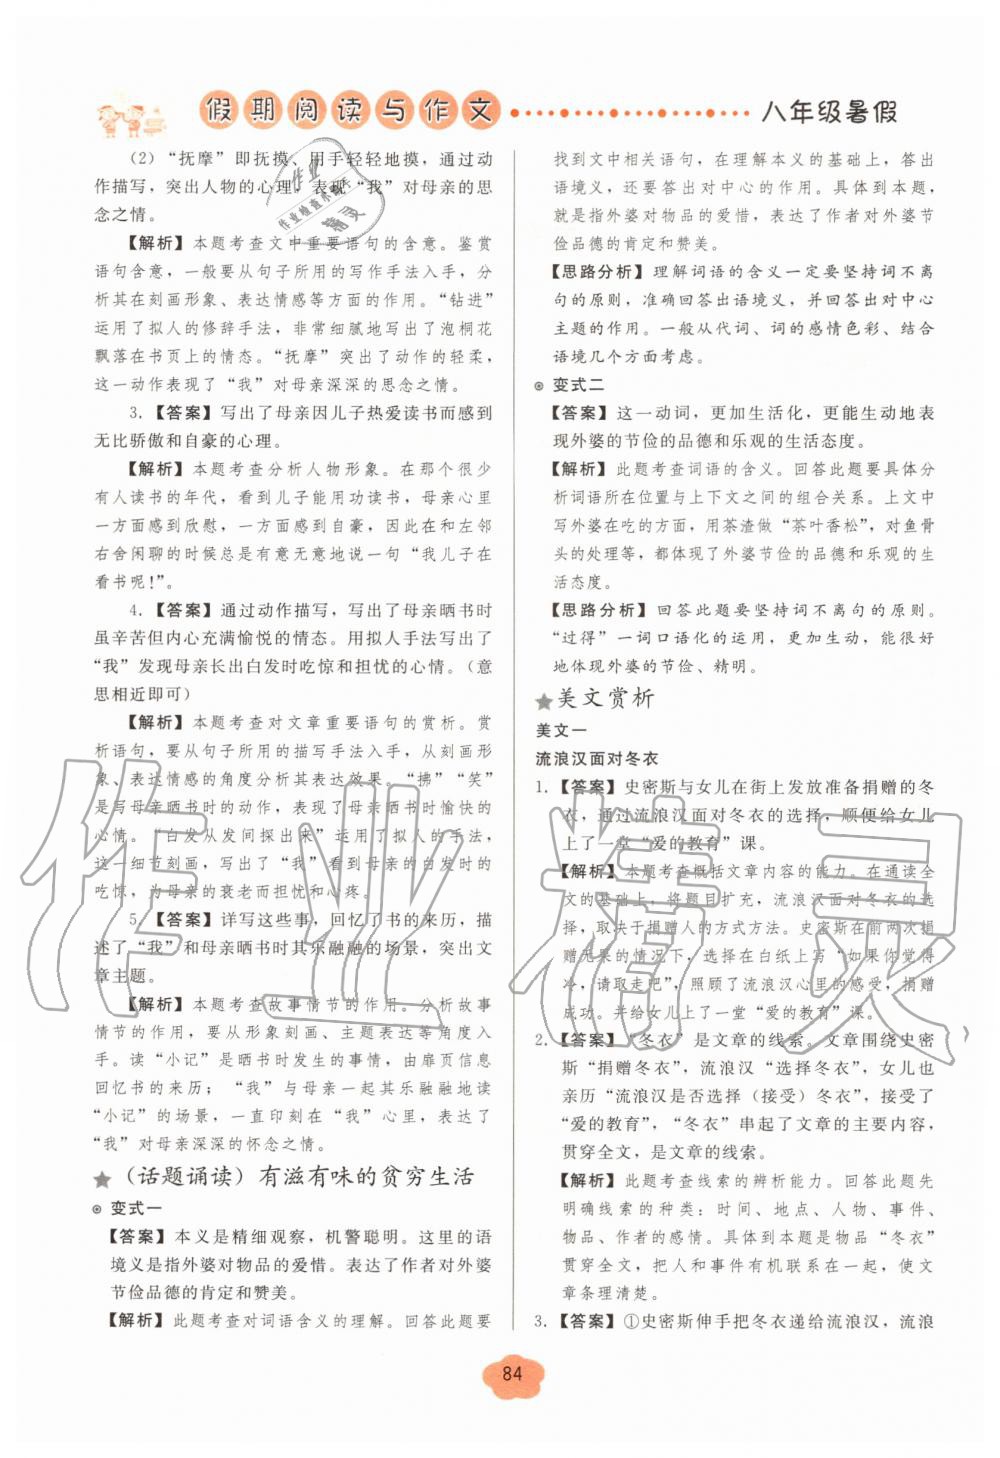 假期阅读与作文
八年级暑假
（2）“抚摩”即抚摸、用手轻轻地摸，通过动
作描写，突出人物的心理，表现“我”对母亲的思
念之情。
【解析】本题考查文中重要语句的含意。鉴赏
语句含意，一般要从句子所用的写作手法入手，分
析其在刻画形象、表达情感等方面的作用。“钻进”
运用了拟人的修辞手法，非常细腻地写出了泡桐花
飘落在书页上的情态。“抚摩”突出了动作的轻柔，
这一动作表现了“我”对母亲深深的思念之情。
3.【答案】写出了母亲因儿子热爱读书而感到
无比骄傲和自豪的心理。
【解析】本题考查分析人物形象。在那个很少
有人读书的年代，看到儿子能用功读书，母亲心里
一方面感到欣慰，一方面感到自豪，因此在和左邻
右舍闲聊的时候总是有意无意地说一句“我儿子在
看书呢！”。
4.【答案】通过动作描写，写出了母亲晒书时
虽辛苦但内心充满愉悦的情态。用拟人手法写出了
“我”发现母亲长出白发时吃惊和担忧的心情。（意
思相近即可）
【解析】本题考查对文章重要语句的赏析。赏
析语句，要从句子所用的描写手法入手，从刻画形
象、表达情感的角度分析其表达效果。“拂”“笑”
是写母亲晒书时的动作，表现了母亲晒书时愉快的
心情。“白发从发间探出来”运用了拟人的手法，
这一细节刻画，写出了“我”看到母亲的白发时的
吃惊，为母亲的衰老而担忧和心疼。
5.【答案】详写这些事，回忆了书的来历，描
述了“我”和母亲晒书时其乐融融的场景，突出文
章主题。
【解析】本题考查故事情节的作用。分析故事
情节的作用，要从形象刻画、主题表达等角度入
手。读“小记”是晒书时发生的事情，由扉页信息
回忆书的来历；“我”与母亲一起其乐融融地读
“小记”的场景，一直印刻在“我”心里，表达了
“我”对母亲深深的怀念之情。
（话题诵读）有滋有味的贫穷生活
变式一
【答案】本义是精细观察，机警聪明。这里的语
境义是指外婆对物品的爱惜。表达了作者对外婆
节俭品德的肯定和赞美。
【解析】此题考查对词语含义的理解。回答此题要
找到文中相关语句，在理解本义的基础上，答出
语境义，还要答出对中心的作用。具体到本题，
就是指外婆对物品的爱惜，表达了作者对外婆节
俭品德的肯定和赞美。
【思路分析】理解词语的含义一定要坚持词不离
句的原则，准确回答出语境义，并回答出对中心
主题的作用。一般从代词、词的感情色彩、结合
语境几个方面考虑。
变式二
【答案】这一动词，更加生活化，更能生动地表
现外婆的节俭的品德和乐观的生活态度。
【解析】此题考查词语的含义。回答此题要具体分
析词语所在位置与上下文之间的组合关系。上文中
写外婆在吃的方面，用茶渣做“茶叶香松”，对鱼骨
头的处理等，都体现了外婆节俭的品德和乐观的生
活态度。
【思路分析】回答此题要坚持词不离句的原则。
“过得”一词口语化的运用，更加生动，能很好
地体现外婆的节俭、精明。
美文赏析
美文一
流浪汉面对冬衣
1.【答案】史密斯与女儿在街上发放准备捐赠的冬
衣，通过流浪汉面对冬衣的选择，顺便给女儿
上了一堂“爱的教育”课。
【解析】本题考查概括文章内容的能力。在通读全
文的基础上，将题目扩充，流浪汉面对冬衣的选
择，取决于捐赠人的方式方法。史密斯在前两次捐
赠无果的情况下，选择在白纸上写“如果您觉得
冷，请取走吧”，照顾了流浪汉心里的感受，捐赠
成功。并给女儿上了一堂“爱的教育”课。
2.【答案】“冬衣”是文章的线索。文章围绕史密
斯“捐赠冬衣”，流浪汉“选择冬衣”，女儿也
亲历“流浪汉是否选择（接受）冬衣”，接受了
“爱的教育”，“冬衣”串起了文章的主要内容，
贯穿全文，是文章的线索。
【解析】此题考查线索的辨析能力。回答此题先
明确线索的种类：时间、地点、人物、事件、
物品、作者的感情。具体到本题是物品“冬衣”
贯穿全文，把人和事件有机联系在一起，使文
章条理清楚。
3.【答案】①史密斯伸手把冬衣递给流浪汉，流浪
84
作业精灵